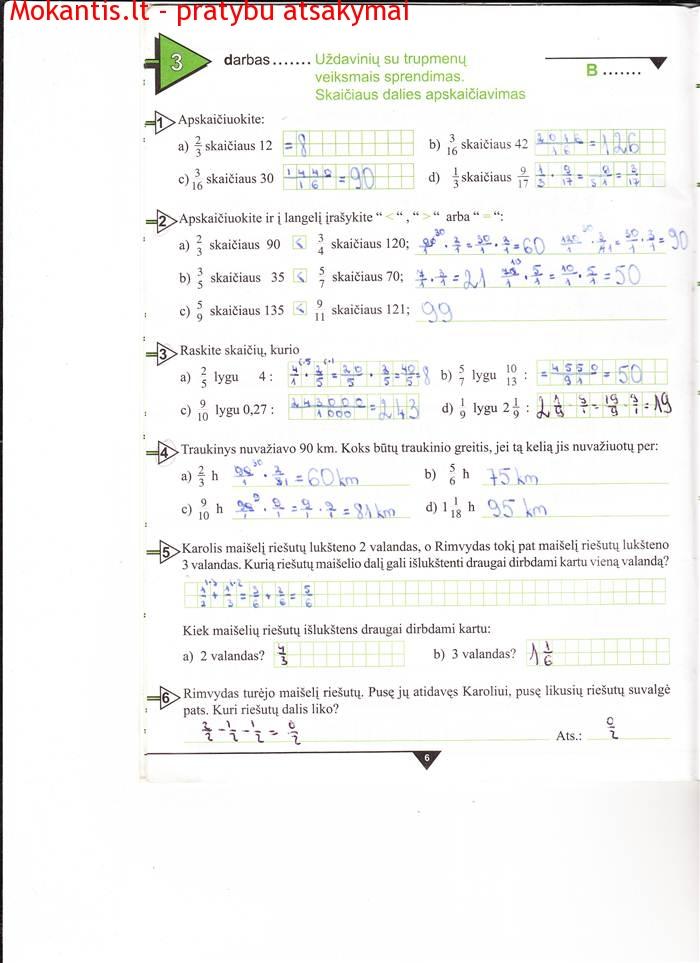 Mokantis.lt - pratybu atsakymai
3 darbas ....... Uždavinių su trupmenų
veiksmais sprendimas.
Skaičiaus dalies apskaičiavimas
B .......
1 Apskaičiuokite:
a) 2/3 skaičius 12 = 8
b) 3/16 skaičiaus 42 2016/16 = 126
c) 3/16 skaičiaus 30 1440/16 = 90
d) 1/3 skaičiaus 9/17 1/3 · 9/17 = 9/51 = 3/17
2 Apskaičiuokite ir į langelį įrašykite “ < “ , “ > “ arba “ = “:
a) 2/3 skaičiaus 90 < 3/4 skaičiaus 120; = 30/1 · 2/1 = 60 = 30/1 · 3/1 = 90
b) 3/5 skaičiaus 35 < 5/7 skaičiaus 70; 7/1 · 3/1 = 21 = 10/1 · 5/1 = 50
c) 5/9 skaičiaus 135 < 9/11 skaičiaus 121; 99
3 Raskite skaičių, kurio
a) 2/5 lygu 4 : = 8
b) 5/7 lygu 10/13 : = 4550/91 = 50
c) 9/10 lygu 0,27 : 243000/1000 = 243
d) 1/9 lygu 2 1/9 : = 19
4 Traukinys nuvažiavo 90 km. Koks būtų traukinio greitis, jei tą kelią jis nuvažiuotų per:
a) 2/3 h = 60 km
b) 5/6 h 75 km
c) 9/10 h = 9/1 · 9/1 = 81 km
d) 1 1/18 h 95 km
5 Karolis maišelį riešutų lukšteno 2 valandas, o Rimvydas tokį pat maišelį riešutų lukšteno
3 valandas. Kurią riešutų maišelio dalį gali išlukštenti draugai dirbdami kartu vieną valandą?
1/2 + 1/3 = 3/6 + 2/6 = 5/6
Kiek maišelių riešutų išlukštens draugai dirbdami kartu:
a) 2 valandas?
b) 3 valandas? 1 1/6
6 Rimvydas turėjo maišelį riešutų. Pusę jų atidavęs Karoliui, pusę likusių riešutų suvalgė
pats. Kuri riešutų dalis liko?
2/2 - 1/2 - 1/2 = 0/2 Ats.: 0/2
6